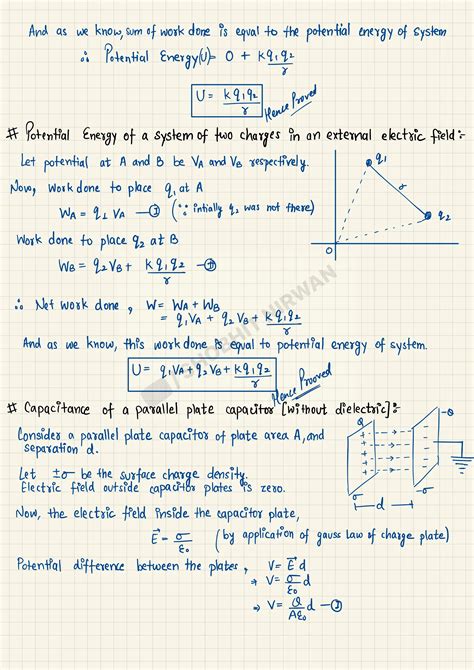 And as we know, sum of work done is equal to the potential energy of system
∴ Potential Energy(U) = 0 + kq₁q₂/r
U = kq₁q₂/r
Hence Proved
# Potential Energy of a system of two charges in an external electric field:-
Let potential at A and B be VA and VB respectively.
Now, work done to place q₁ at A
WA = q₁ VA – ① (∵ intially q₂ was not there)
Work done to place q₂ at B
WB = q₂VB + kq₁q₂/r – ②
∴ Net work done, W = WA + WB
= q₁VA + q₂VB + kq₁q₂/r
And as we know, this work done is equal to potential energy of system.
U = q₁VA + q₂VB + kq₁q₂/r
Hence Prooved
q₁
r
q₂
O
/SHOBHIT NIRWAN
# Capacitance of a parallel plate capacitor [without dielectric]:-
Consider a parallel plate capacitor of plate area A, and
separation d.
Let ±σ be the surface charge density.
Electric field outside capacitor plates is zero.
Now, the electric field inside the capacitor plate,
E⃗ = σ/ε₀ (by application of gauss law of charge plate)
Potential difference between the plates, V = E⃗ d
⇒ V = σ/ε₀ d
⇒ V = Q/Aε₀ d – ①
Q
-Q
σ
-σ
d